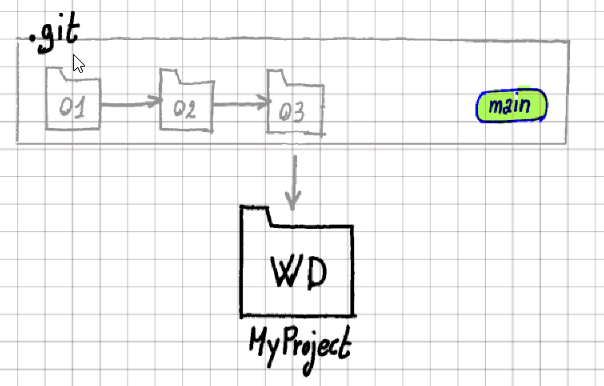 .git
01 02 03 main
WD
MyProject